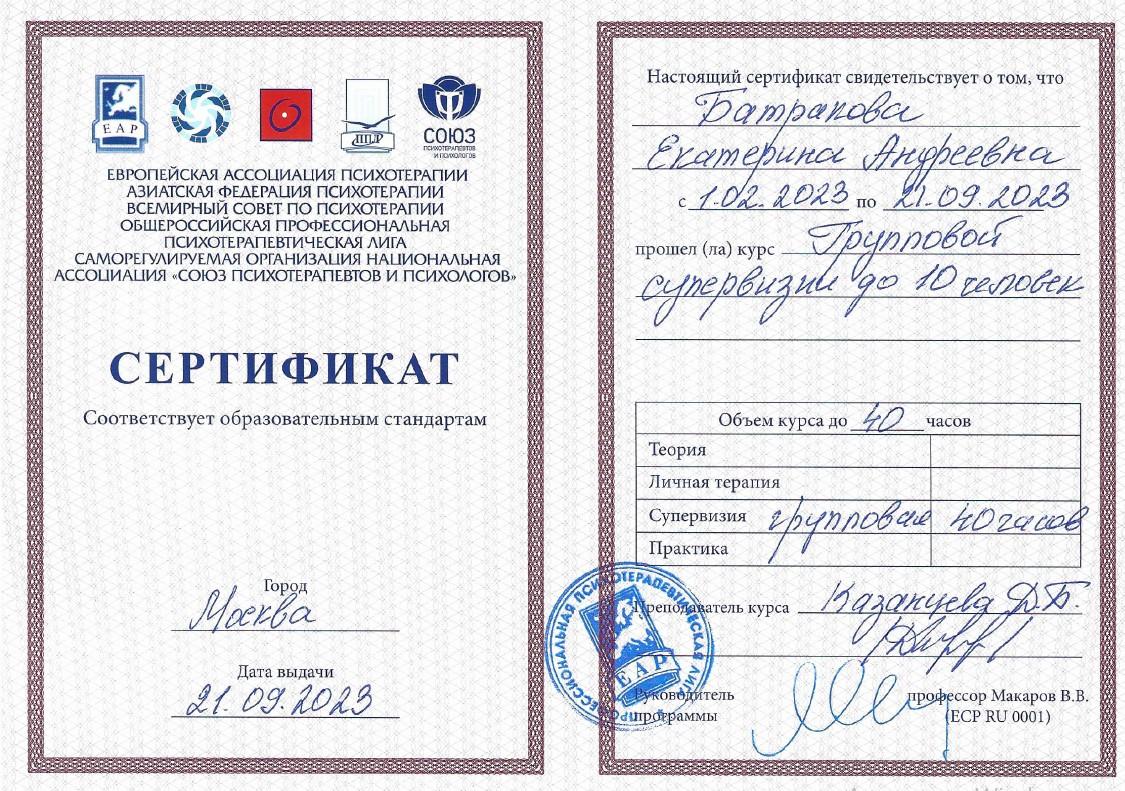 EAP
ППЛ
СОЮЗ
ПСИХОТЕРАПЕВТОВ
И ПСИХОЛОГОВ
ЕВРОПЕЙСКАЯ АССОЦИАЦИЯ ПСИХОТЕРАПИИ
АЗИАТСКАЯ ФЕДЕРАЦИЯ ПСИХОТЕРАПИИ
ВСЕМИРНЫЙ СОВЕТ ПО ПСИХОТЕРАПИИ
ОБЩЕРОССИЙСКАЯ ПРОФЕССИОНАЛЬНАЯ
ПСИХОТЕРАПЕВТИЧЕСКАЯ ЛИГА
САМОРЕГУЛИРУЕМАЯ ОРГАНИЗАЦИЯ НАЦИОНАЛЬНАЯ
АССОЦИАЦИЯ «СОЮЗ ПСИХОТЕРАПЕВТОВ И ПСИХОЛОГОВ»
СЕРТИФИКАТ
Соответствует образовательным стандартам
Город
Москва
Дата выдачи
21.09.2023
Настоящий сертификат свидетельствует о том, что
Батракова
Екатерина Андреевна
с 1.02.2023 по 21.09.2023
прошел (ла) курс Групповой
супервизии до 10 человек
Объем курса до 40 часов
Теория
Личная терапия
Супервизия групповая 40 часов
Практика
Преподаватель курса Казанцева Д.Б.
Руководитель программы
профессор Макаров В.В.
(ECP RU 0001)
ПРОФЕССИОНАЛЬНАЯ ПСИХОТЕРАПЕВТИЧЕСКАЯ ЛИГА
EAP